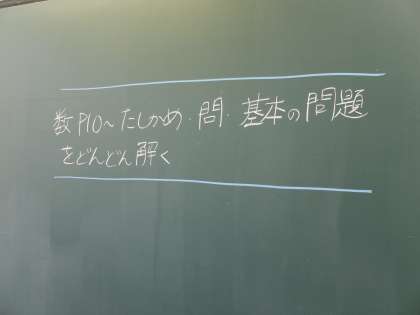 数P10～たしかめ・問・基本の問題
をどんどん解く